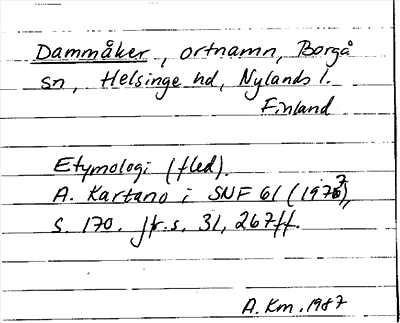 Dammåker, ortnamn, Borgå
sn, Helsinge hd, Nylands l.
Finland
Etymologi (fled).
A. Kartano i SNF 61 (1977),
s. 170. Jfr s. 31, 267ff.
A.Km.1987